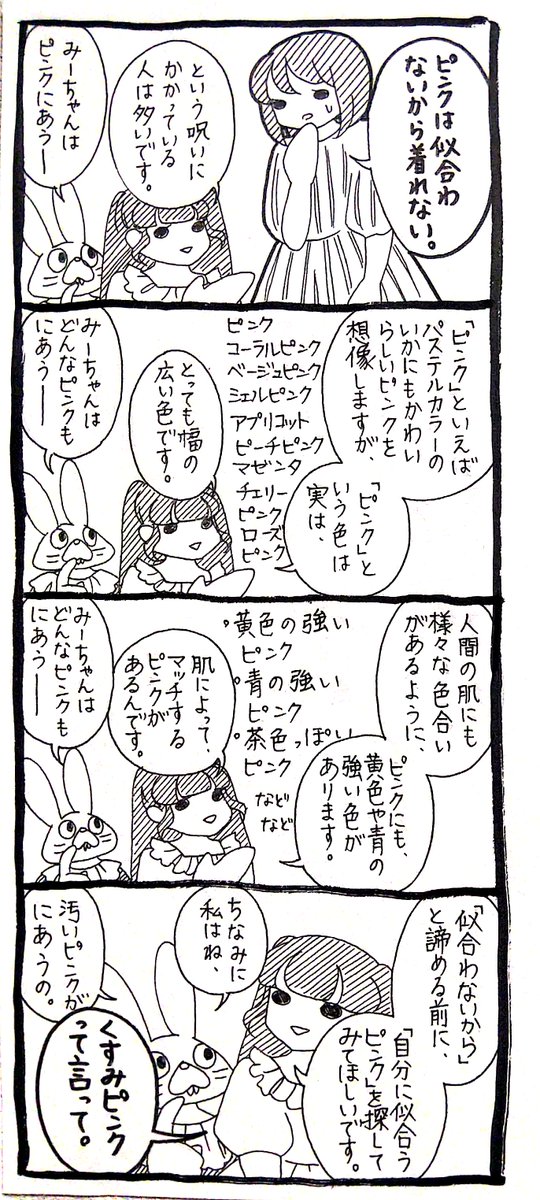 ピンクは似合わ
ないから着れない。
という呪いに
かかっている
人は多いです。
みーちゃんは
ピンクにあうー
「ピンク」といえば
パステルカラーの
いかにもかわい
らしいピンクを
想像しますが、
「ピンク」と
いう色は
実は、
ピンク
コーラルピンク
ベージュピンク
シェルピンク
アプリコット
ピーチピンク
マゼンタ
チェリー
ピンク
ローズ
ピンク
とっても幅の
広い色です。
みーちゃんは
どんなピンクも
にあうー
人間の肌にも
様々な色合い
があるように、
ピンクにも、
黄色や青の
強い色が
あります。
°黄色の強い
ピンク
°青の強い
ピンク
°茶色っぽい
ピンク
など
など
肌によって、
マッチする
ピンクが
あるんです。
みーちゃんは
どんなピンクも
にあうー
「似合わないから」
と諦める前に、
「自分に似合う
ピンク」を探して
みてほしいです。
ちなみに
私はね、
汚いピンクが
にあうの。
くすみピンク
って言って。